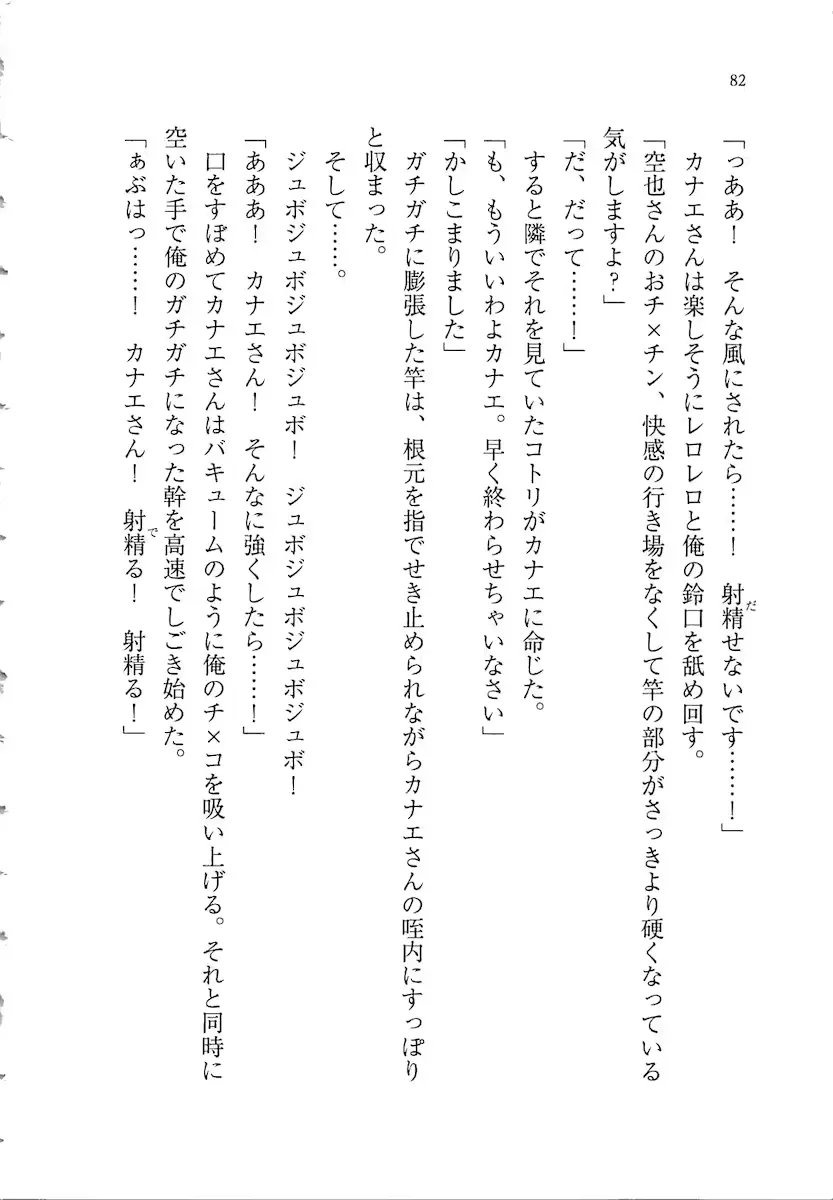 82
「っああ！　そんな風にされたら……！　射精せないです……！」
だ
カナエさんは楽しそうにレロレロと俺の鈴口を舐め回す。
「空也さんのおチ×チン、快感の行き場をなくして竿の部分がさっきより硬くなっている
気がしますよ？」
「だ、だって……！」
すると隣でそれを見ていたコトリがカナエに命じた。
「も、もういいわよカナエ。早く終わらせちゃいなさい」
「かしこまりました」
ガチガチに膨張した竿は、根元を指でせき止められながらカナエさんの咥内にすっぽり
と収まった。
そして……。
ジュボジュボジュボジュボ！　ジュボジュボジュボジュボ！
「あああ！　カナエさん！　そんなに強くしたら……！」
口をすぼめてカナエさんはバキュームのように俺のチ×コを吸い上げる。それと同時に
空いた手で俺のガチガチになった幹を高速でしごき始めた。
「ぁぶはっ……！　カナエさん！　射精る！　射精る！」
で